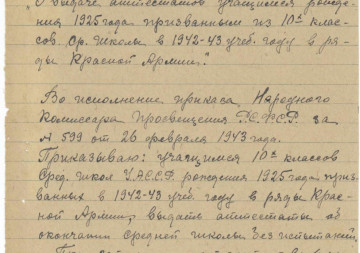 "О выдаче аттестатов учащимся рожде-
ния 1925 года призванным из 10х клас-
сов. Ср. школы в 1942-43 учеб. году в ря-
ды Красной Армии."
Во исполнение приказа Народного
Комиссара Просвещения Р.С.Ф.С.Р. за
№ 599 от 26 февраля 1943 года.
Приказываю: учащимся 10х классов
Сред. школ рождения 1925 года приз-
ванных в 1942-43 учеб. году в ряды Крас-
ной Армии, выдать аттестаты об
окончании средней школы без испытаний.